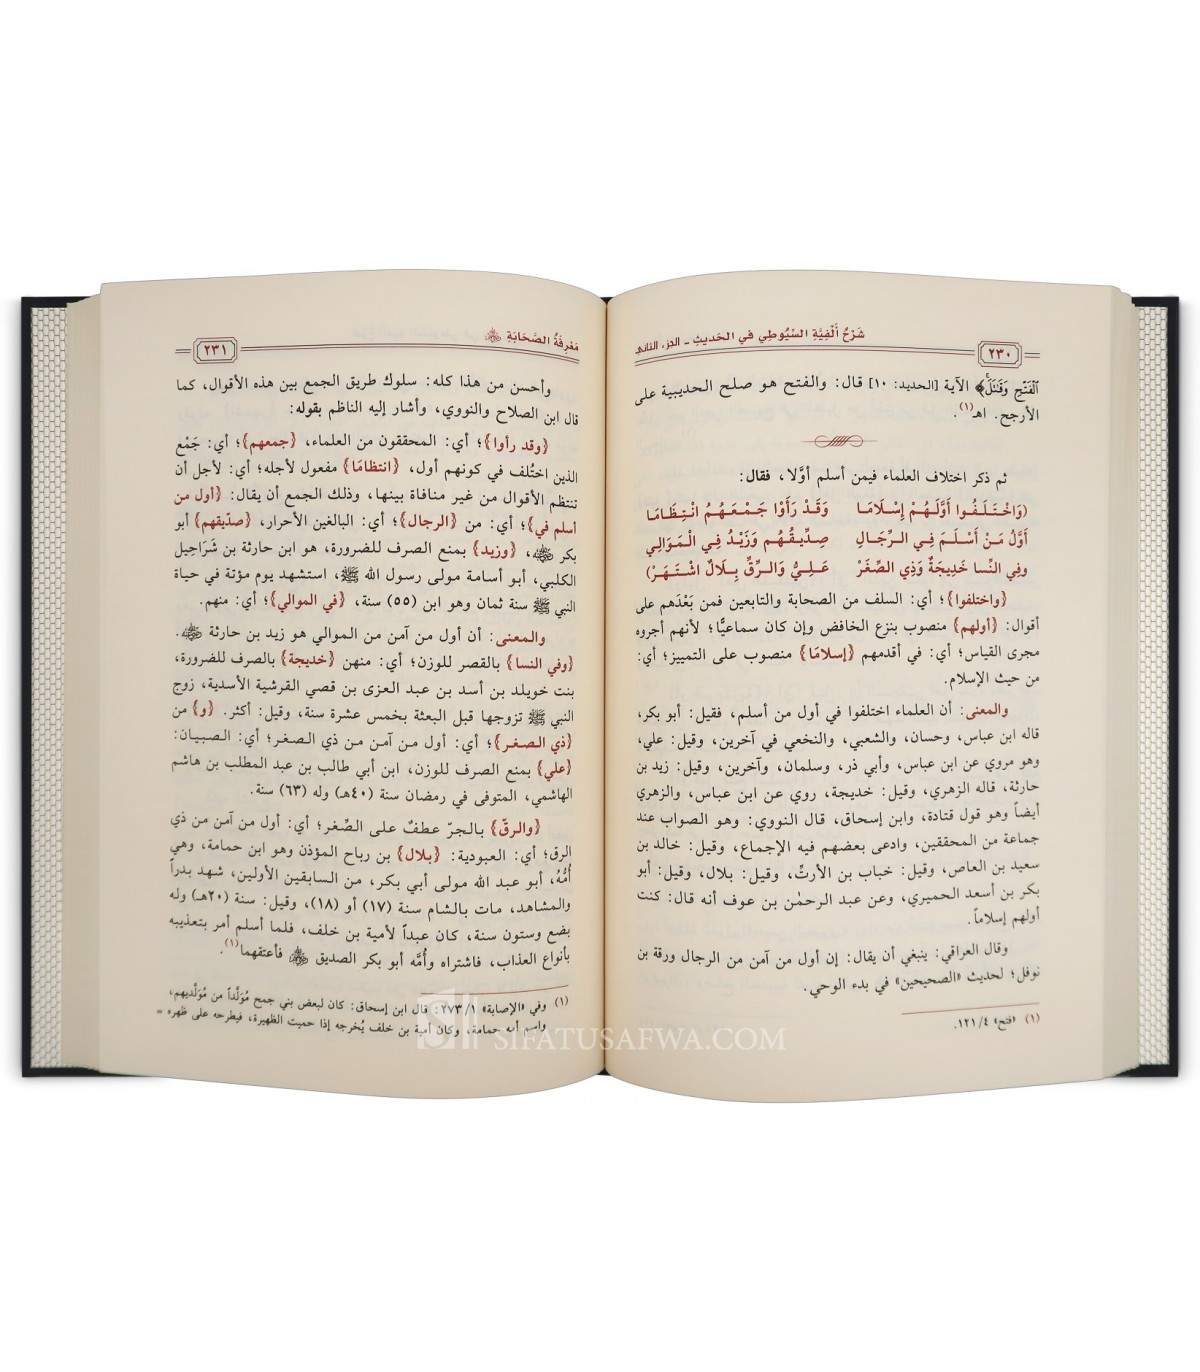 ٢٣٠
شَرْحُ أَلْفِيَّةِ السُّيُوطِي في الحَديثِ - الجزء الثاني
ٱلْفَتْحِ وَقَٰتَلَ﴾ الآية [الحديد: ١٠] قال: والفتح هو صلح الحديبية على
الأرجح. اهـ(١).
ثم ذكر اختلاف العلماء فيمن أسلم أوَّلا، فقال:
(وَاخْتَلَفُوا أَوَّلَهُمْ إِسْلَامَا وَقَدْ رَأَوْا جَمْعَهُمُ انْتِظَامَا
أَوَّلُ مَنْ أَسْلَمَ فِي الرِّجَالِ صِدِّيقُهُم وَزَيْدُ فِي الْمَوَالِي
وفِي النِّسا خَدِيجَةٌ وَذِي الصِّغَرْ عَلِيُّ وَالرِّقِّ بِلَالٌ اشْتَهَرْ)
﴿واختلفوا﴾؛ أي: السلف من الصحابة والتابعين فمن بَعْدَهم على
أقوال: ﴿أولهم﴾ منصوب بنزع الخافض وإن كان سماعيًّا؛ لأنهم أجروه
مجرى القياس؛ أي: في أقدمهم ﴿إسلامًا﴾ منصوب على التمييز؛ أي:
من حيث الإسلام.
والمعنى: أن العلماء اختلفوا في أول من أسلم، فقيل: أبو بكر،
قاله ابن عباس، وحسان، والشعبي، والنخعي في آخرين، وقيل: علي،
وهو مروي عن ابن عباس، وأبي ذر، وسلمان، وآخرين، وقيل: زيد بن
حارثة، قاله الزهري، وقيل: خديجة، روي عن ابن عباس، والزهري
أيضاً وهو قول قتادة، وابن إسحاق، قال النووي: وهو الصواب عند
جماعة من المحققين، وادعى بعضهم فيه الإجماع، وقيل: خالد بن
سعيد بن العاص، وقيل: خباب بن الأرتّ، وقيل: بلال، وقيل: أبو
بكر بن أسعد الحميري، وعن عبد الرحمٰن بن عوف أنه قال: كنت
أولهم إسلاماً.
وقال العراقي: ينبغي أن يقال: إن أول من آمن من الرجال ورقة بن
نوفل؛ لحديث «الصحيحين» في بدء الوحي.
(١) «فتح» ١٢١/٤.
مَعْرِفَةُ الصَّحَابَةِ ﵃
٢٣١
وأحسن من هذا كله: سلوك طريق الجمع بين هذه الأقوال، كما
قال ابن الصلاح والنووي، وأشار إليه الناظم بقوله:
﴿وقد رأوا﴾؛ أي: المحققون من العلماء، ﴿جمعهم﴾؛ أي: جَمْع
الذين اختُلف في كونهم أول، ﴿انتظامًا﴾ مفعول لأجله؛ أي: لأجل أن
تنتظم الأقوال من غير منافاة بينها، وذلك الجمع أن يقال: ﴿أول من
أسلم في﴾؛ أي: من ﴿الرجال﴾؛ أي: البالغين الأحرار، ﴿صدّيقهم﴾ أبو
بكر ﵁، ﴿وزيد﴾ بمنع الصرف للضرورة، هو ابن حارثة بن شَرَاحِيل
الكلبي، أبو أسامة مولى رسول الله ﷺ، استشهد يوم مؤتة في حياة
النبي ﷺ سنة ثمان وهو ابن (٥٥) سنة، ﴿في الموالي﴾؛ أي: منهم.
والمعنى: أن أول من آمن من الموالي هو زيد بن حارثة ﵁.
﴿وفي النسا﴾ بالقصر للوزن؛ أي: منهن ﴿خديجة﴾ بالصرف للضرورة،
بنت خويلد بن أسد بن عبد العزى بن قصي القرشية الأسدية، زوج
النبي ﷺ تزوجها قبل البعثة بخمس عشرة سنة، وقيل: أكثر. ﴿و﴾ من
﴿ذي الصغر﴾؛ أي: أول من آمن من ذي الصغر؛ أي: الصبيان:
﴿علي﴾ بمنع الصرف للوزن، ابن أبي طالب بن عبد المطلب بن هاشم
الهاشمي، المتوفى في رمضان سنة (٤٠هـ) وله (٦٣) سنة.
﴿والرقّ﴾ بالجرّ عطفٌ على الصِّغر؛ أي: أول من آمن من ذي
الرق؛ أي: العبودية: ﴿بلال﴾ بن رباح المؤذن وهو ابن حمامة، وهي
أُمُّهُ، أبو عبد الله مولى أبي بكر، من السابقين الأولين، شهد بدراً
والمشاهد، مات بالشام سنة (١٧) أو (١٨)، وقيل: سنة (٢٠هـ) وله
بضع وستون سنة، كان عبداً لأمية بن خلف، فلما أسلم أمر بتعذيبه
بأنواع العذاب، فاشتراه وأُمَّه أبو بكر الصديق ﵁ فأعتقهما(١).
(١) وفي «الإصابة» ٢٧٣/١: قال ابن إسحاق: كان لبعض بني جمح مُوَلَّداً من مُوَلَّديهم،
واسم أمه حمامة، وكان أمية بن خلف يُخرجه إذا حميت الظهيرة، فيطرحه على ظهره =
SIFATUSAFWA.COM